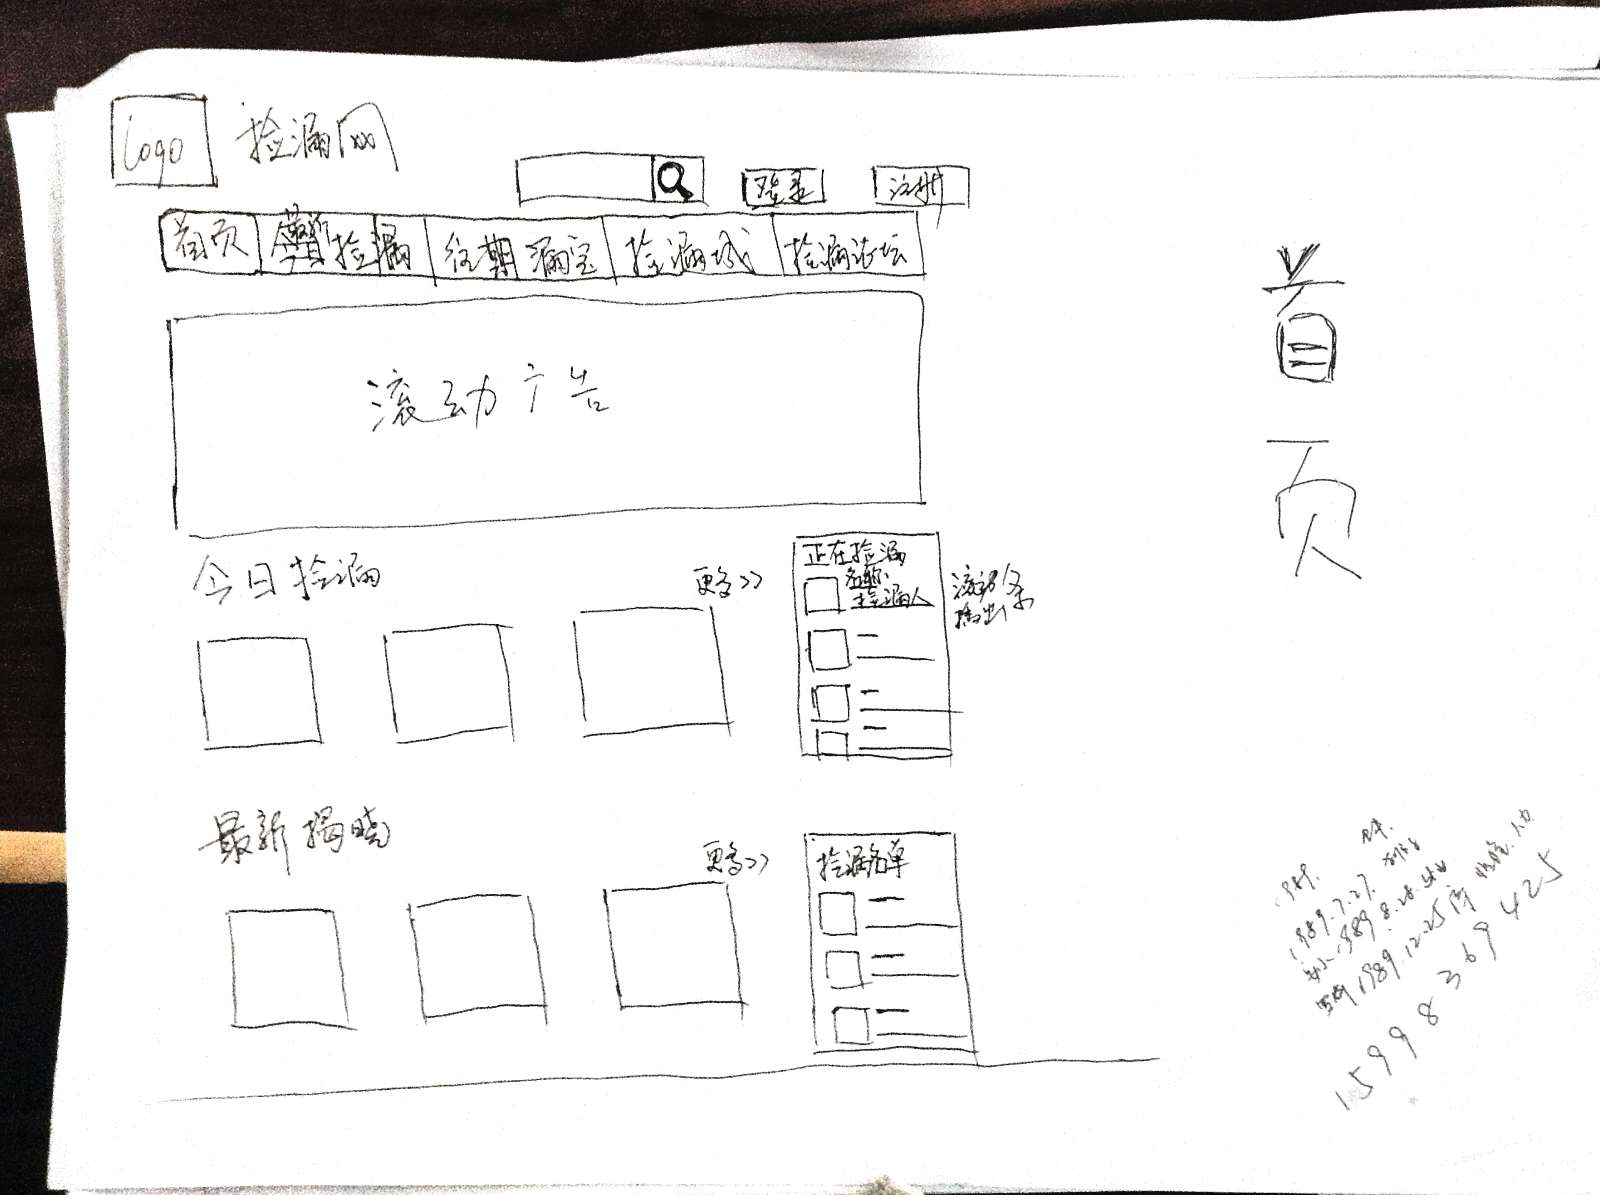 Logo 捡漏网
登录 注册
首页 最新捡漏 往期漏宝 捡漏城 捡漏论坛
滚动广告
今日捡漏 更多>>
正在捡漏
名称
捡漏人
滚动条
最新揭晓 更多>>
捡漏名单
首页
1989.
1989.7.27.
1989.8.28.
1989.12.25
15998369425